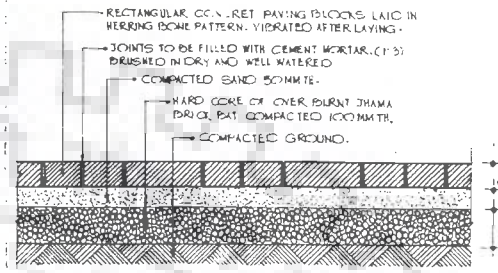 RECTANGULAR PAVING BLOCKS LAID IN
HERRING BONE PATTERN. VIBRATED AFTER LAYING.
JOINTS TO BE FILLED WITH CEMENT MORTAR. (1:3)
BRUSHED IN DRY AND WELL WATERED
COMPACTED SAND 50MMTH.
HARD CORE OF OVER BURNT JHAMA
BRICK BAT COMPACTED 100MMTH.
COMPACTED GROUND.